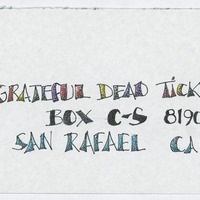 GRATEFUL DEAD TICK
BOX C-S 8190
SAN RAFAEL CA